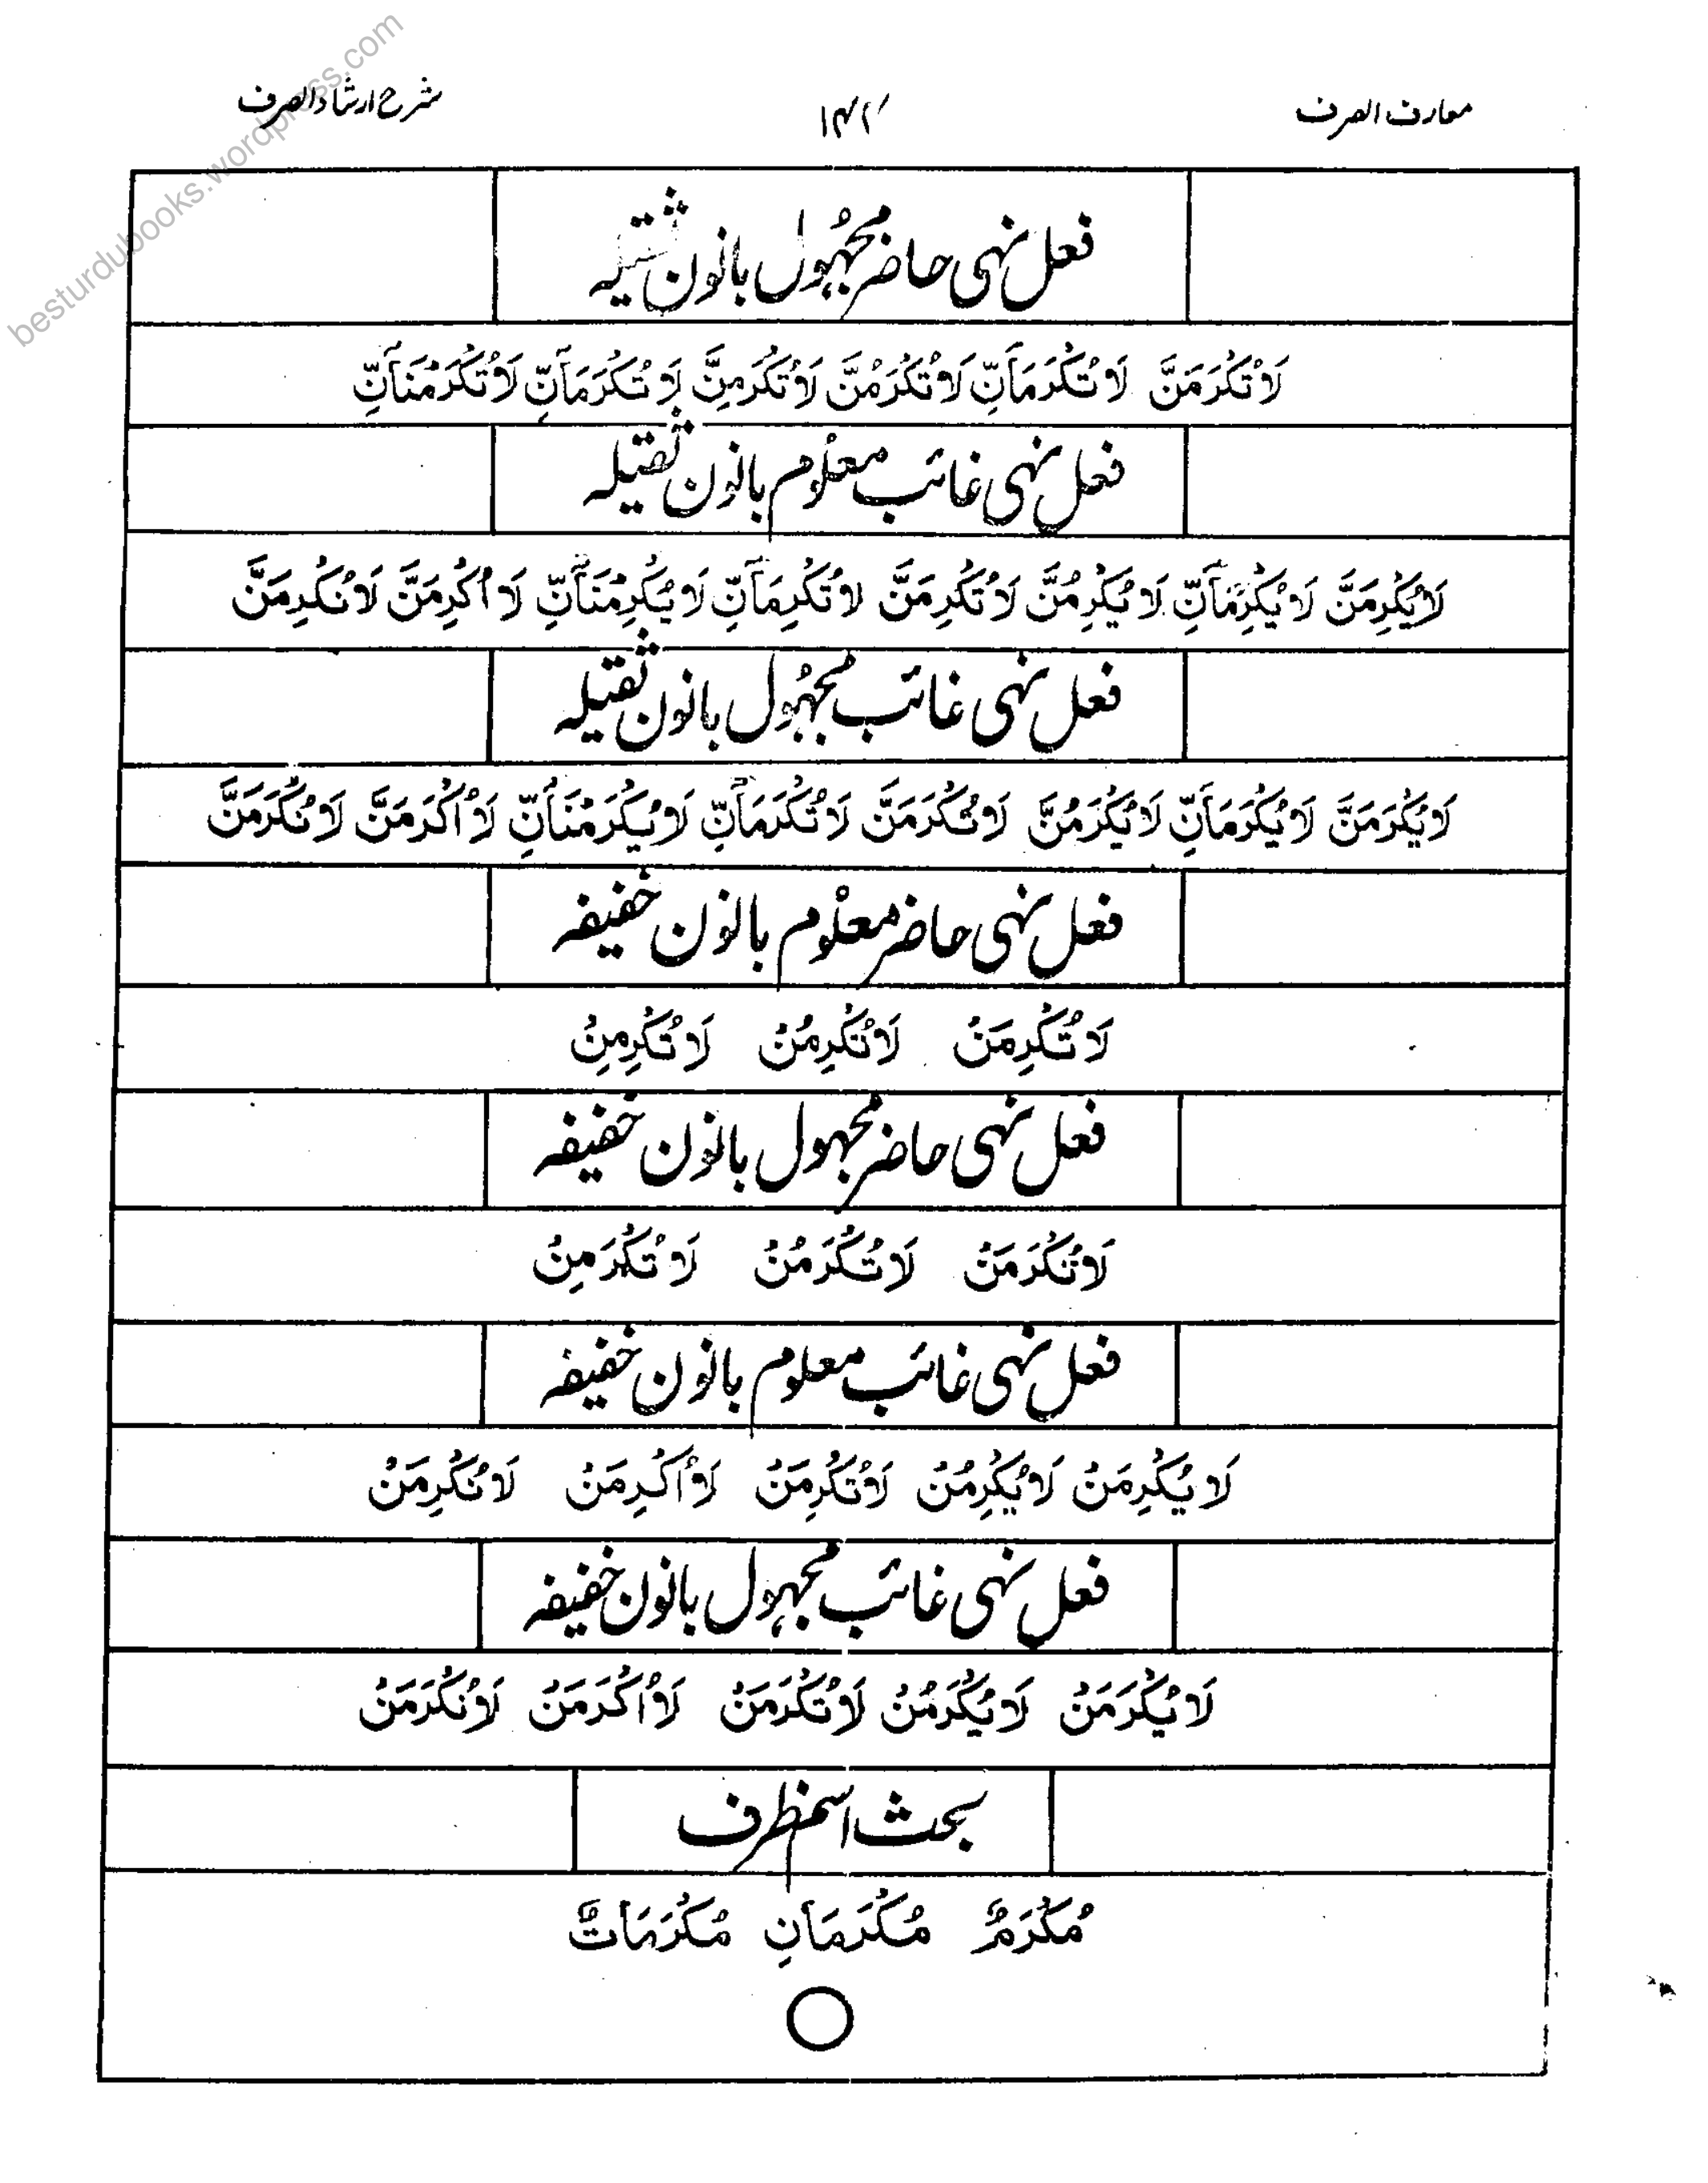 معارف الصرف
۱۴۲
شرح ارشاد الصرف
فعل نہی حاضر مجہُول بانون ثقیلہ
لَا تُكْرَمَنَّ لَا تُكْرَمَانِّ لَا تُكْرَمُنَّ لَا تُكْرَمِنَّ لَا تُكْرَمَانِّ لَا تُكْرَمْنَانِّ
فعل نہی غائب معلُوم بانون ثقیلہ
لَا يُكْرِمَنَّ لَا يُكْرِمَانِّ لَا يُكْرِمُنَّ لَا تُكْرِمَنَّ لَا تُكْرِمَانِّ لَا يُكْرِمْنَانِّ لَا اُكْرِمَنَّ لَا نُكْرِمَنَّ
فعل نہی غائب مجہُول بانون ثقیلہ
لَا يُكْرَمَنَّ لَا يُكْرَمَانِّ لَا يُكْرَمُنَّ لَا تُكْرَمَنَّ لَا تُكْرَمَانِّ لَا يُكْرَمْنَانِّ لَا اُكْرَمَنَّ لَا نُكْرَمَنَّ
فعل نہی حاضر معلُوم بانون خفیفہ
لَا تُكْرِمَنْ لَا تُكْرِمُنْ لَا تُكْرِمِنْ
فعل نہی حاضر مجہول بانون خفیفہ
لَا تُكْرَمَنْ لَا تُكْرَمُنْ لَا تُكْرَمِنْ
فعل نہی غائب معلوم بانون خفیفہ
لَا يُكْرِمَنْ لَا يُكْرِمُنْ لَا تُكْرِمَنْ لَا اُكْرِمَنْ لَا نُكْرِمَنْ
فعل نہی غائب مجہول بانون خفیفہ
لَا يُكْرَمَنْ لَا يُكْرَمُنْ لَا تُكْرَمَنْ لَا اُكْرَمَنْ لَا نُكْرَمَنْ
بحث اسم ظرف
مُكْرَمٌ مُكْرَمَانِ مُكْرَمَاتٌ
besturdubooks.wordpress.com